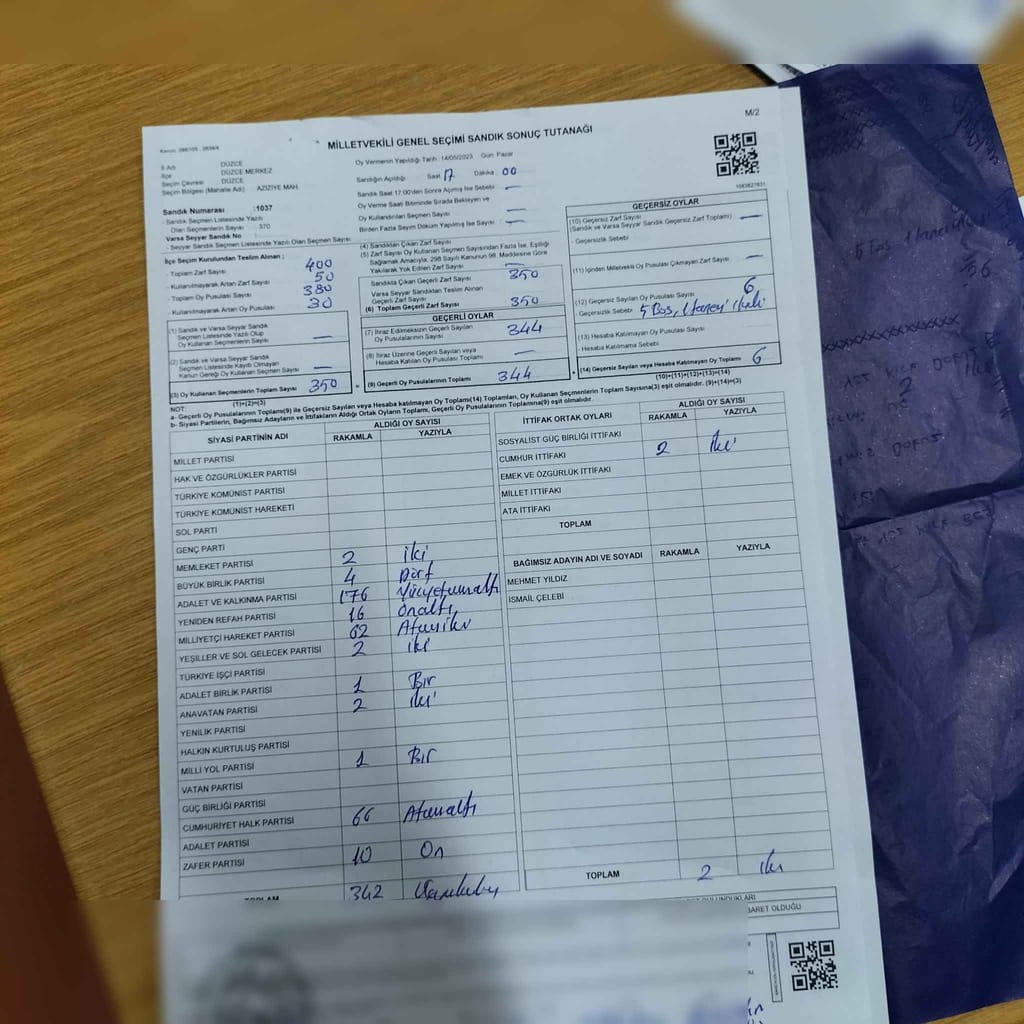 M/2
MİLLETVEKİLİ GENEL SEÇİMİ SANDIK SONUÇ TUTANAĞI
İl Adı DÜZCE
İlçe DÜZCE MERKEZ
Seçim Çevresi DÜZCE
Seçim Bölgesi (Mahalle Adı) AZİZİYE MAH.
Oy Vermenin Yapıldığı Tarih : 14/05/2023 Gün: Pazar
Sandığın Açıldığı Saat 17 Dakika 00
Sandık Saat 17:00'den Sonra Açılmış İse Sebebi —
Oy Verme Saati Bitiminde Sırada Bekleyen ve
Oy Kullandırılan Seçmen Sayısı —
Birden Fazla Sayım Döküm Yapılmış İse Sayısı : —
Sandık Numarası :1037
- Sandık Seçmen Listesinde Yazılı
Olan Seçmenlerin Sayısı : 370
Varsa Seyyar Sandık No :
- Seyyar Sandık Listesinde Yazılı Olan Seçmen Sayısı
İlçe Seçim Kurulundan Teslim Alınan ;
- Toplam Zarf Sayısı 400
- Kullanılmayarak Artan Zarf Sayısı 50
- Toplam Oy Pusulası Sayısı 380
- Kullanılmayarak Artan Oy Pusulası 30
(1) Sandık ve Varsa Seyyar Sandık
Seçmen Listesinde Yazılı Olup
Oy Kullanan Seçmenlerin Sayısı —
(2) Sandık ve Varsa Seyyar Sandık
Seçmen Listesinde Kayıtlı Olmayan
Kanun Gereği Oy Kullanan Seçmen Sayısı —
(3) Oy Kullanan Seçmenlerin Toplam Sayısı 350
(1)+(2)=(3)
(4) Sandıktan Çıkan Zarf Sayısı
(5) Zarf Sayısı Oy Kullanan Seçmen Sayısından Fazla İse, Eşitliği
Sağlamak Amacıyla, 298 Sayılı Kanunun 98. Maddesine Göre
Yakılarak Yok Edilen Zarf Sayısı —
Sandıkta Çıkan Geçerli Zarf Sayısı 350
Varsa Seyyar Sandıktan Teslim Alınan
Geçerli Zarf Sayısı —
(6) Toplam Geçerli Zarf Sayısı 350
GEÇERLİ OYLAR
(7) İtiraz Edilmeksizin Geçerli Sayılan
Oy Pusulalarının Sayısı 344
(8) İtiraz Üzerine Geçerli Sayılan veya
Hesaba Katılan Oy Pusulası Toplamı —
(9) Geçerli Oy Pusulalarının Toplamı 344
GEÇERSİZ OYLAR
(10) Geçersiz Zarf Sayısı
(Sandık ve Varsa Seyyar Sandık Geçersiz Zarf Toplamı) —
- Geçersizlik Sebebi
(11) İçinden Milletvekili Oy Pusulası Çıkmayan Zarf Sayısı —
(12) Geçersiz Sayılan Oy Pusulası Sayısı 6
- Geçersizlik Sebebi 5 Boş, 1 tanesi
(13) Hesaba Katılmayan Oy Pusulası Sayısı
- Hesaba Katılmama Sebebi
(14) Geçersiz Sayılan veya Hesaba Katılmayan Oy Toplamı 6
(10)+(11)+(12)+(13)=(14)
NOT:
a- Geçerli Oy Pusulalarının Toplamı(9) ile Geçersiz Sayılan veya Hesaba katılmayan Oy Toplamı(14) Toplamları, Oy Kullanan Seçmenlerin Toplam Sayısına(3) eşit olmalıdır. (9)+(14)=(3)
b- Siyasi Partilerin, Bağımsız Adayların ve İttifakların Aldığı Ortak Oyların Toplamı, Geçerli Oy Pusulalarının Toplamına(9) eşit olmalıdır.
SİYASİ PARTİNİN ADI ALDIĞI OY SAYISI
RAKAMLA YAZIYLA
MİLLET PARTİSİ
HAK VE ÖZGÜRLÜKLER PARTİSİ
TÜRKİYE KOMÜNİST PARTİSİ
TÜRKİYE KOMÜNİST HAREKETİ
SOL PARTİ
GENÇ PARTİ
MEMLEKET PARTİSİ 2 iki
BÜYÜK BİRLİK PARTİSİ 4 Dört
ADALET VE KALKINMA PARTİSİ 176 Yüzyetmişaltı
YENİDEN REFAH PARTİSİ 16 Onaltı
MİLLİYETÇİ HAREKET PARTİSİ 62 Atmışiki
YEŞİLLER VE SOL GELECEK PARTİSİ 2 iki
TÜRKİYE İŞÇİ PARTİSİ
ADALET BİRLİK PARTİSİ 1 Bir
ANAVATAN PARTİSİ 2 iki
YENİLİK PARTİSİ
HALKIN KURTULUŞ PARTİSİ
MİLLİ YOL PARTİSİ 1 Bir
VATAN PARTİSİ
GÜÇ BİRLİĞİ PARTİSİ
CUMHURİYET HALK PARTİSİ 66 Atmışaltı
ADALET PARTİSİ
ZAFER PARTİSİ 10 On
TOPLAM 342
İTTİFAK ORTAK OYLARI ALDIĞI OY SAYISI
RAKAMLA YAZIYLA
SOSYALİST GÜÇ BİRLİĞİ İTTİFAKI
CUMHUR İTTİFAKI 2 İki
EMEK VE ÖZGÜRLÜK İTTİFAKI
MİLLET İTTİFAKI
ATA İTTİFAKI
TOPLAM
BAĞIMSIZ ADAYIN ADI VE SOYADI RAKAMLA YAZIYLA
MEHMET YILDIZ
İSMAİL ÇELEBİ
TOPLAM 2 iki
BARET OLDUĞU